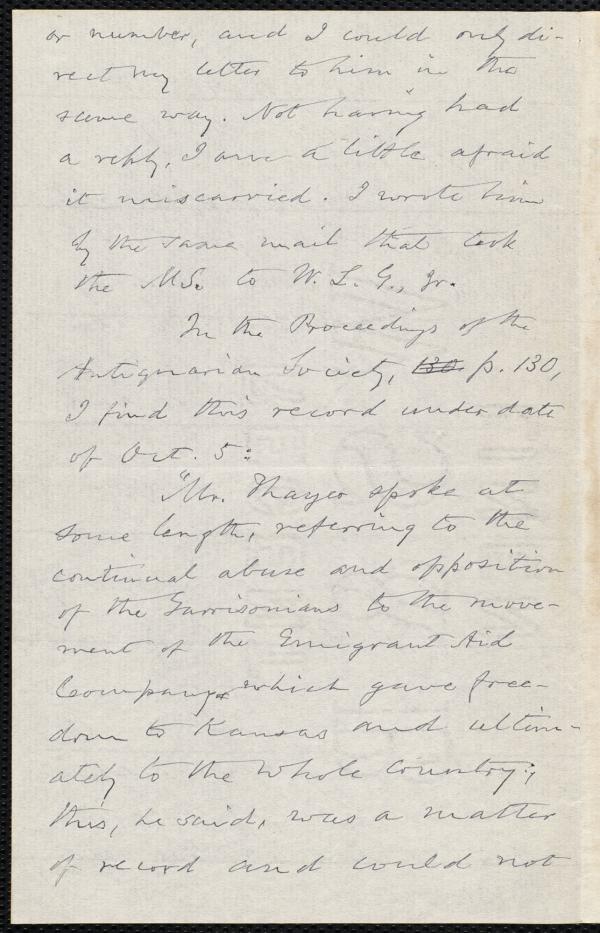 or number, and I could only di-
rect my letter to him in the
same way. Not having had
a reply, I am a little afraid
it miscarried. I wrote him
by the same mail that took
the MS. to W. L. G., Jr.
In the Proceedings of the
Antiquarian Society, 130 p. 130,
I find this record under date
of Oct. 5:
"Mr. Thayer spoke at
some length, referring to the
continual abuse and opposition
of the Garrisonians to the move-
ment of the Emigrant Aid
Company which gave free-
dom to Kansas and ultim-
ately to the whole country;
this, he said, was a matter
of record and could not